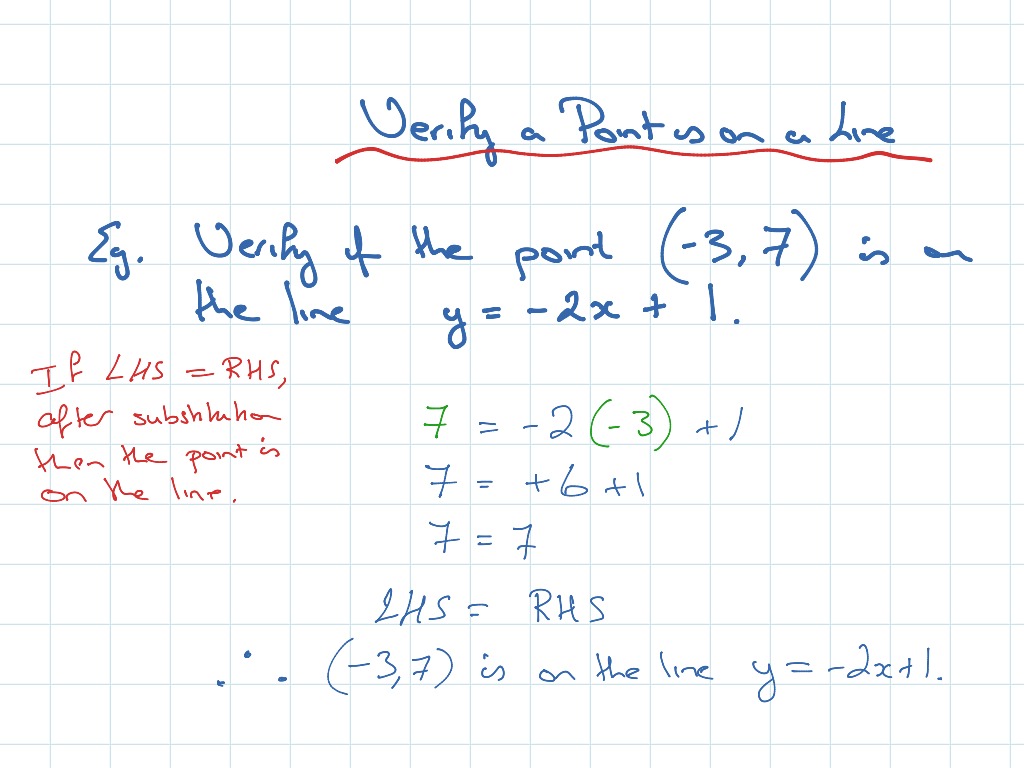 Verify a Point is on a Line
Eg. Verify if the point (-3, 7) is on
the line y = -2x + 1.
If LHS = RHS,
after substitution
then the point is
on the line.
7 = -2 (-3) + 1
7 = +6 +1
7 = 7
LHS = RHS
∴ (-3,7) is on the line y = -2x+1.